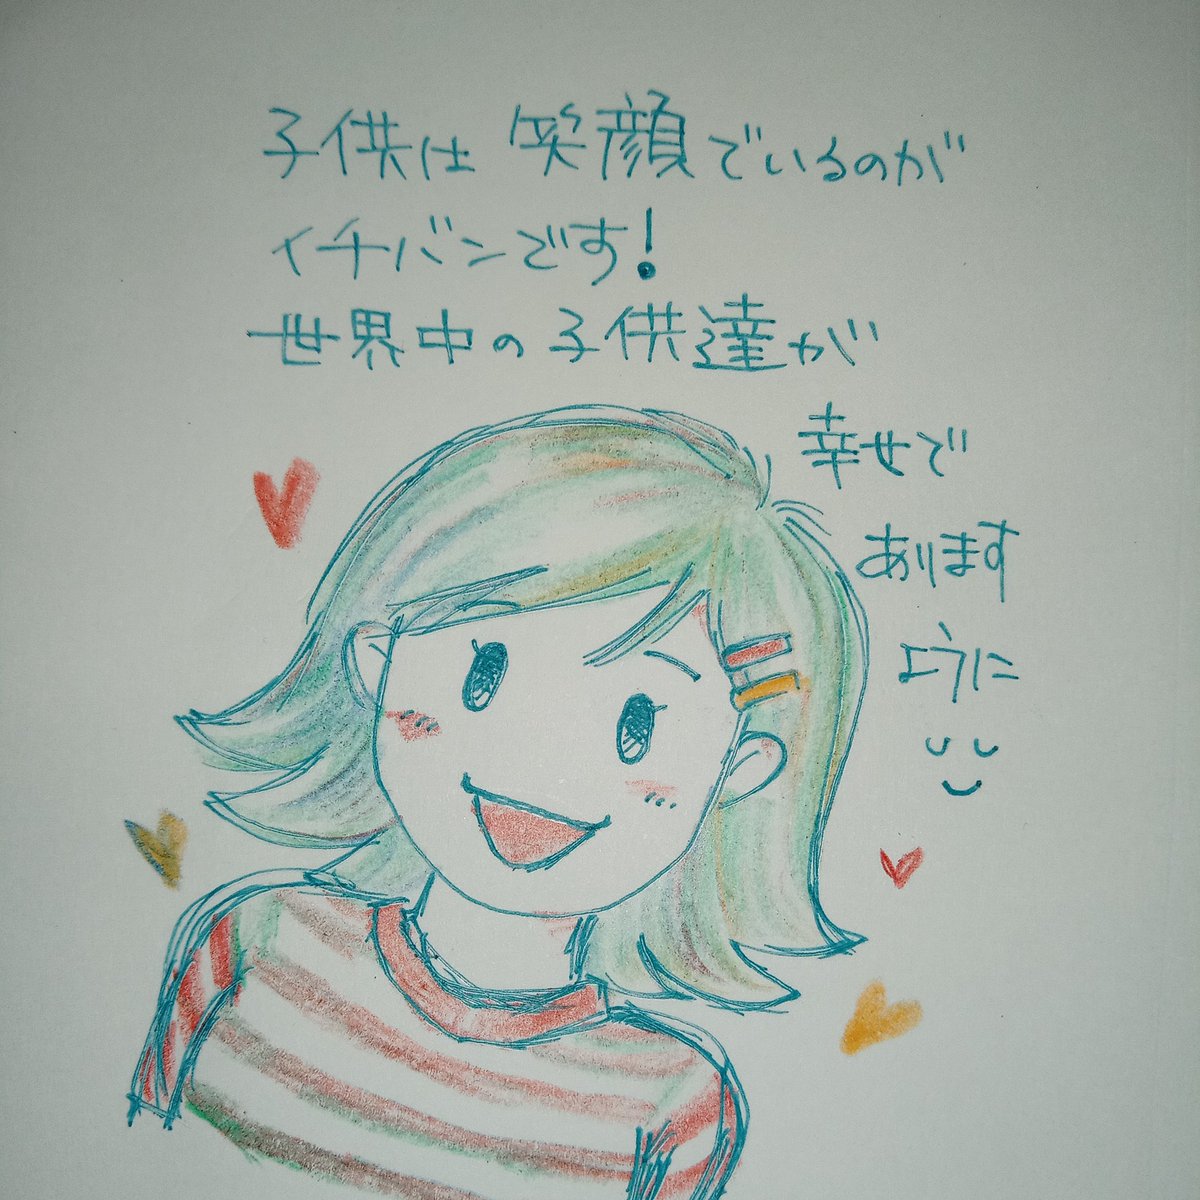 子供は笑顔でいるのが
イチバンです!
世界中の子供達が
幸せで
あります
ように